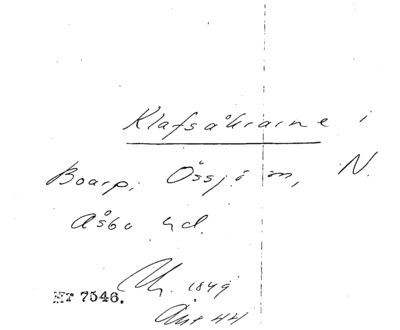 Klafsåkrarne i
Boarp, Össjö sn, N.
Åsbo hd.
1849
ET 7546.
Akt 44